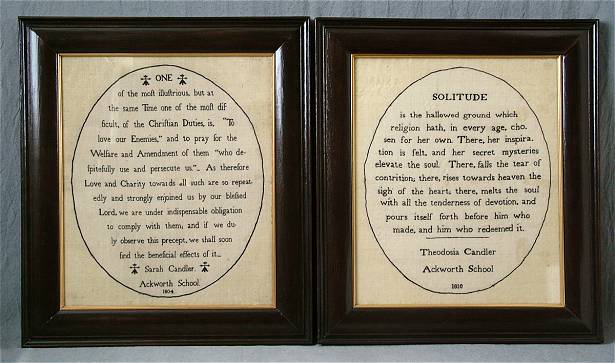 ONE
of the moſt illuſtrious, but at
the same Time one of the moſt dif
ficult, of the Chriſtian Duties, is, "To
love our Enemies," and to pray for the
Welfare and Amendment of them "who de-
ſpitefully use and persecute us."_ As therefore
Love and Charity towards all such are so repeat-
edly and strongly enjoined us by our bleſsed
Lord, we are under indispensable obligation
to comply with them, and if we du-
ly observe this precept, we shall soon
find the beneficial effects of it._
Sarah Candler.
Ackworth School.
1804
SOLITUDE
is the hallowed ground which
religion hath, in every age, cho-
sen for her own. There, her inspira-
tion is felt, and her secret mysteries
elevate the soul. There, falls the tear of
contrition; there, rises towards heaven the
sigh of the heart; there, melts the soul
with all the tenderness of devotion, and
pours itself forth before him who
made, and him who redeemed it.
Theodosia Candler
Ackworth School
1810